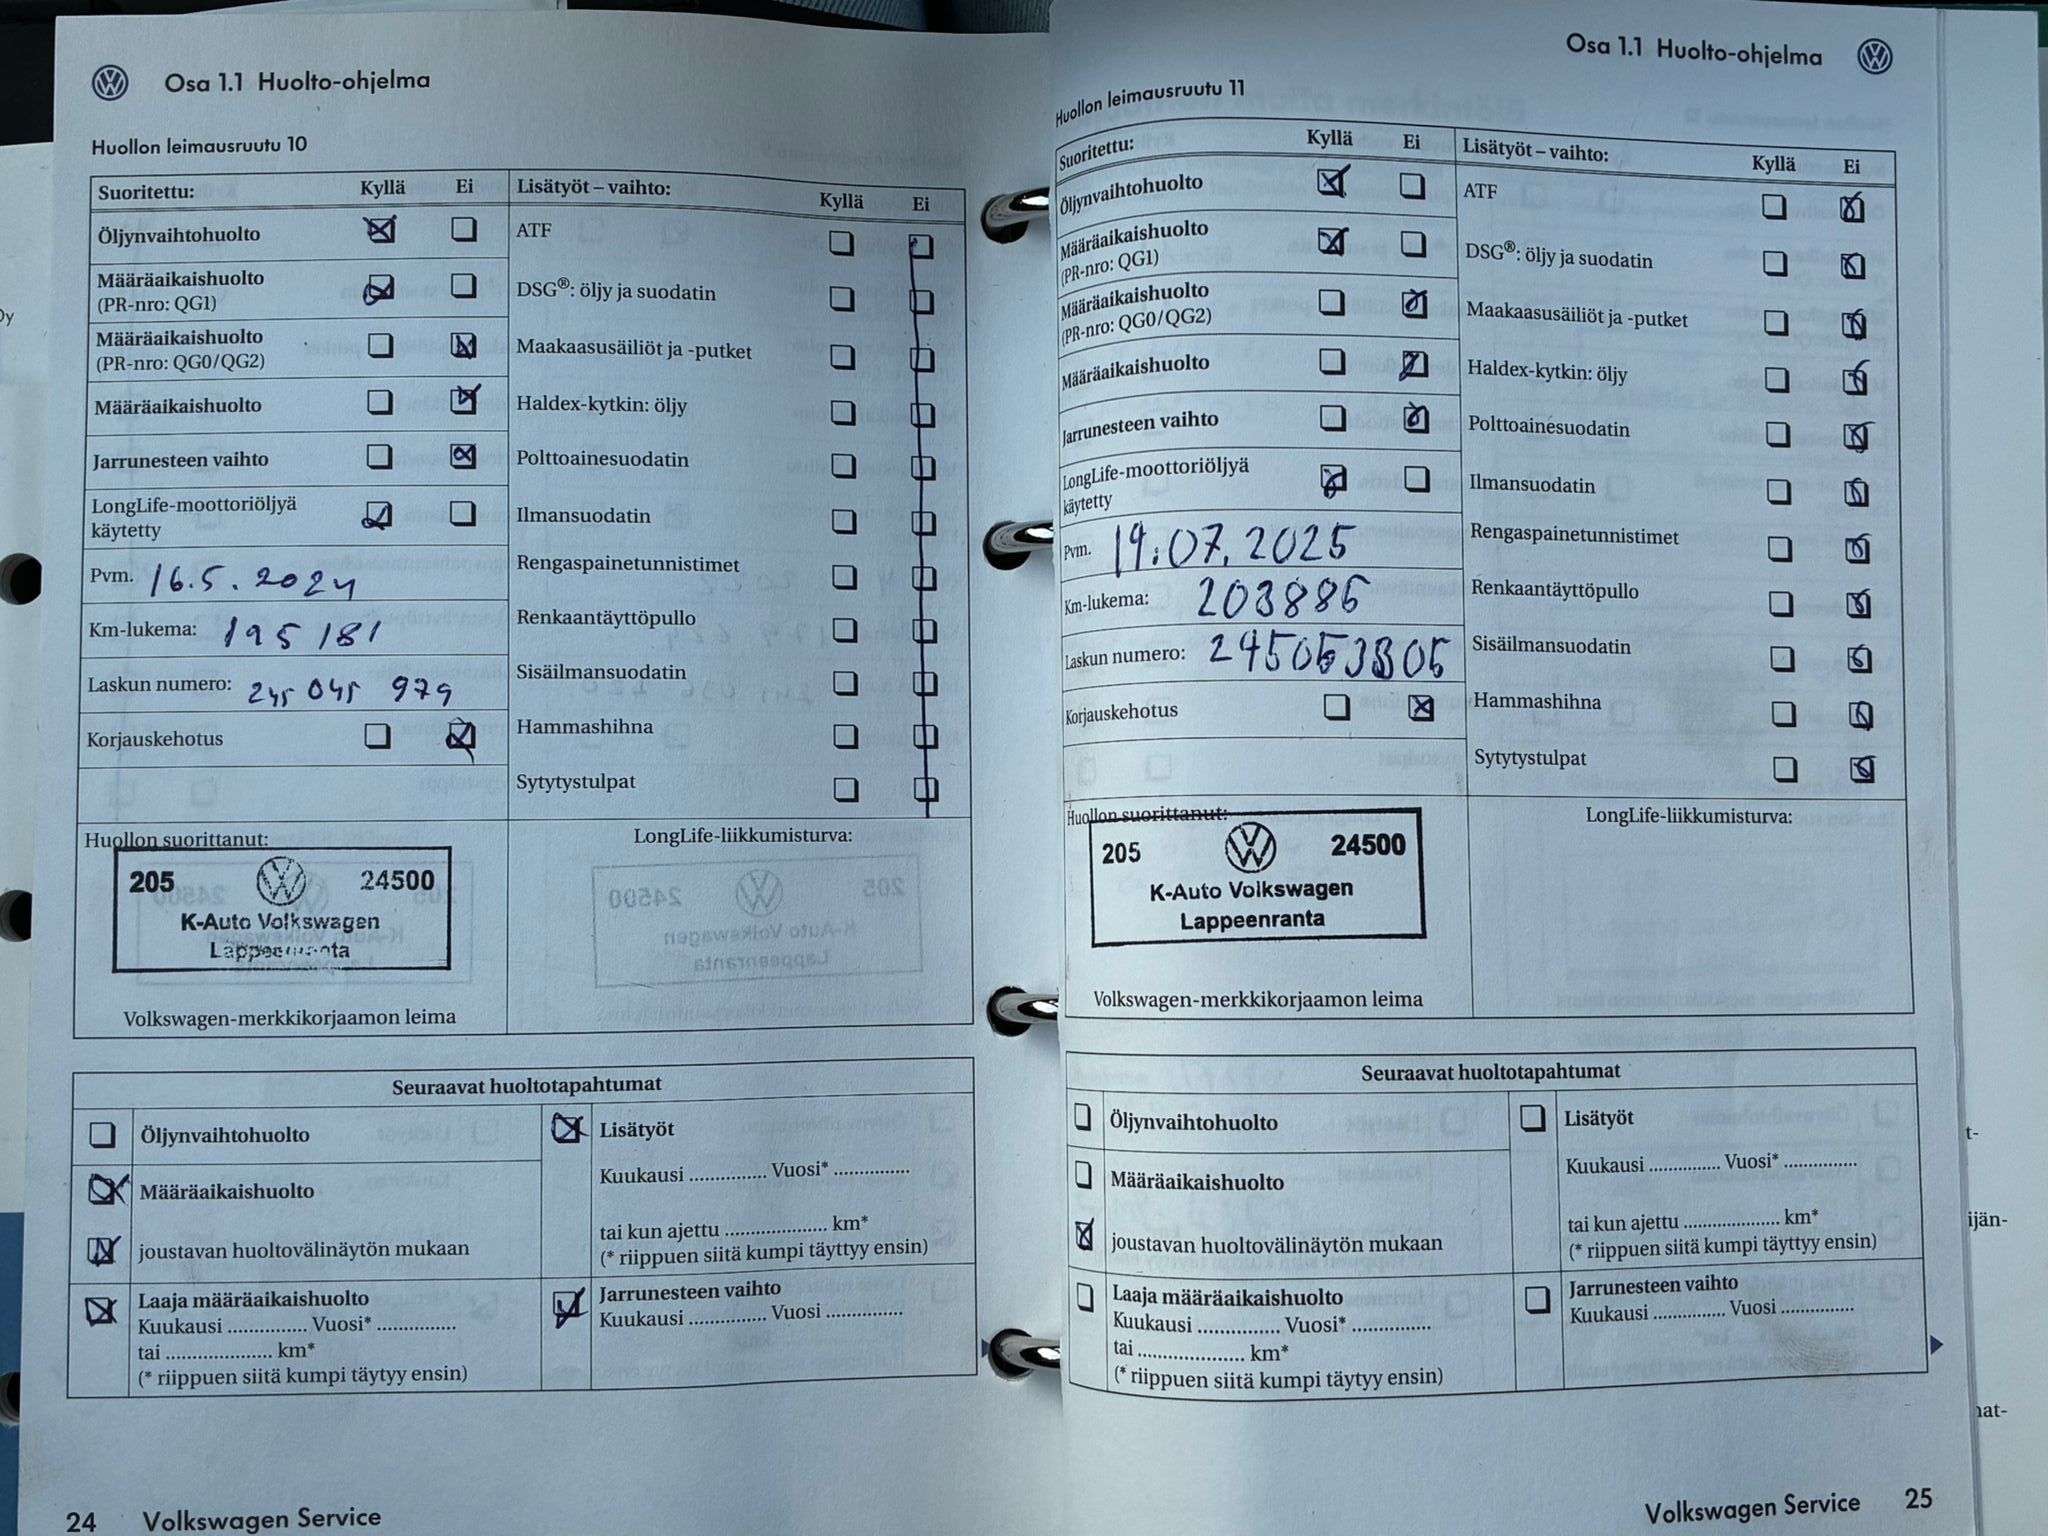 Osa 1.1 Huolto-ohjelma
Huollon leimausruutu 10
Suoritettu: Kyllä Ei
Öljynvaihtohuolto
Määräaikaishuolto
(PR-nro: QG1)
Määräaikaishuolto
(PR-nro: QG0/QG2)
Määräaikaishuolto
Jarrunesteen vaihto
LongLife-moottoriöljyä
käytetty
Pvm. 16.5.2024
Km-lukema: 195181
Laskun numero: 245 045 979
Korjauskehotus
Lisätyöt – vaihto: Kyllä Ei
ATF
DSG®: öljy ja suodatin
Maakaasusäiliöt ja -putket
Haldex-kytkin: öljy
Polttoainesuodatin
Ilmansuodatin
Rengaspainetunnistimet
Renkaantäyttöpullo
Sisäilmansuodatin
Hammashihna
Sytytystulpat
Huollon suorittanut:
205 24500
K-Auto Volkswagen
Lappeenranta
Volkswagen-merkkikorjaamon leima
LongLife-liikkumisturva:
Seuraavat huoltotapahtumat
Öljynvaihtohuolto
Määräaikaishuolto
joustavan huoltovälinäytön mukaan
Laaja määräaikaishuolto
Kuukausi ............... Vuosi* ...............
tai .................... km*
(* riippuen siitä kumpi täytyy ensin)
Lisätyöt
Kuukausi ............... Vuosi* ...............
tai kun ajettu .................... km*
(* riippuen siitä kumpi täyttyy ensin)
Jarrunesteen vaihto
Kuukausi ............... Vuosi ...............
24 Volkswagen Service
Osa 1.1 Huolto-ohjelma
Huollon leimausruutu 11
Suoritettu: Kyllä Ei
Öljynvaihtohuolto
Määräaikaishuolto
(PR-nro: QG1)
Määräaikaishuolto
(PR-nro: QG0/QG2)
Määräaikaishuolto
Jarrunesteen vaihto
LongLife-moottoriöljyä
käytetty
Pvm. 14.07.2025
Km-lukema: 203886
Laskun numero: 245053305
Korjauskehotus
Lisätyöt – vaihto: Kyllä Ei
ATF
DSG®: öljy ja suodatin
Maakaasusäiliöt ja -putket
Haldex-kytkin: öljy
Polttoainesuodatin
Ilmansuodatin
Rengaspainetunnistimet
Renkaantäyttöpullo
Sisäilmansuodatin
Hammashihna
Sytytystulpat
Huollon suorittanut:
205 24500
K-Auto Volkswagen
Lappeenranta
Volkswagen-merkkikorjaamon leima
LongLife-liikkumisturva:
Seuraavat huoltotapahtumat
Öljynvaihtohuolto
Määräaikaishuolto
joustavan huoltovälinäytön mukaan
Laaja määräaikaishuolto
Kuukausi ............... Vuosi* ...............
tai .................... km*
(* riippuen siitä kumpi täytyy ensin)
Lisätyöt
Kuukausi .............. Vuosi* ..............
tai kun ajettu .................... km*
(* riippuen siitä kumpi täyttyy ensin)
Jarrunesteen vaihto
Kuukausi .............. Vuosi ..............
Volkswagen Service 25